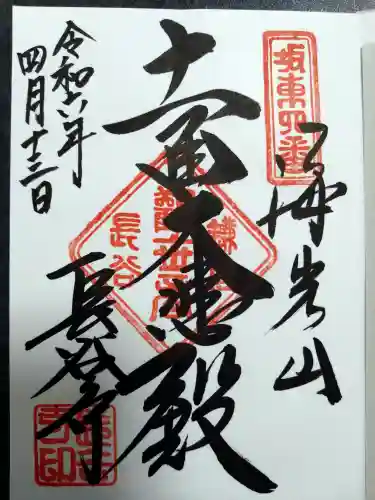 坂東四番
海光山
十一面大悲殿
鎌倉
長谷
長谷寺
令和六年
四月十三日